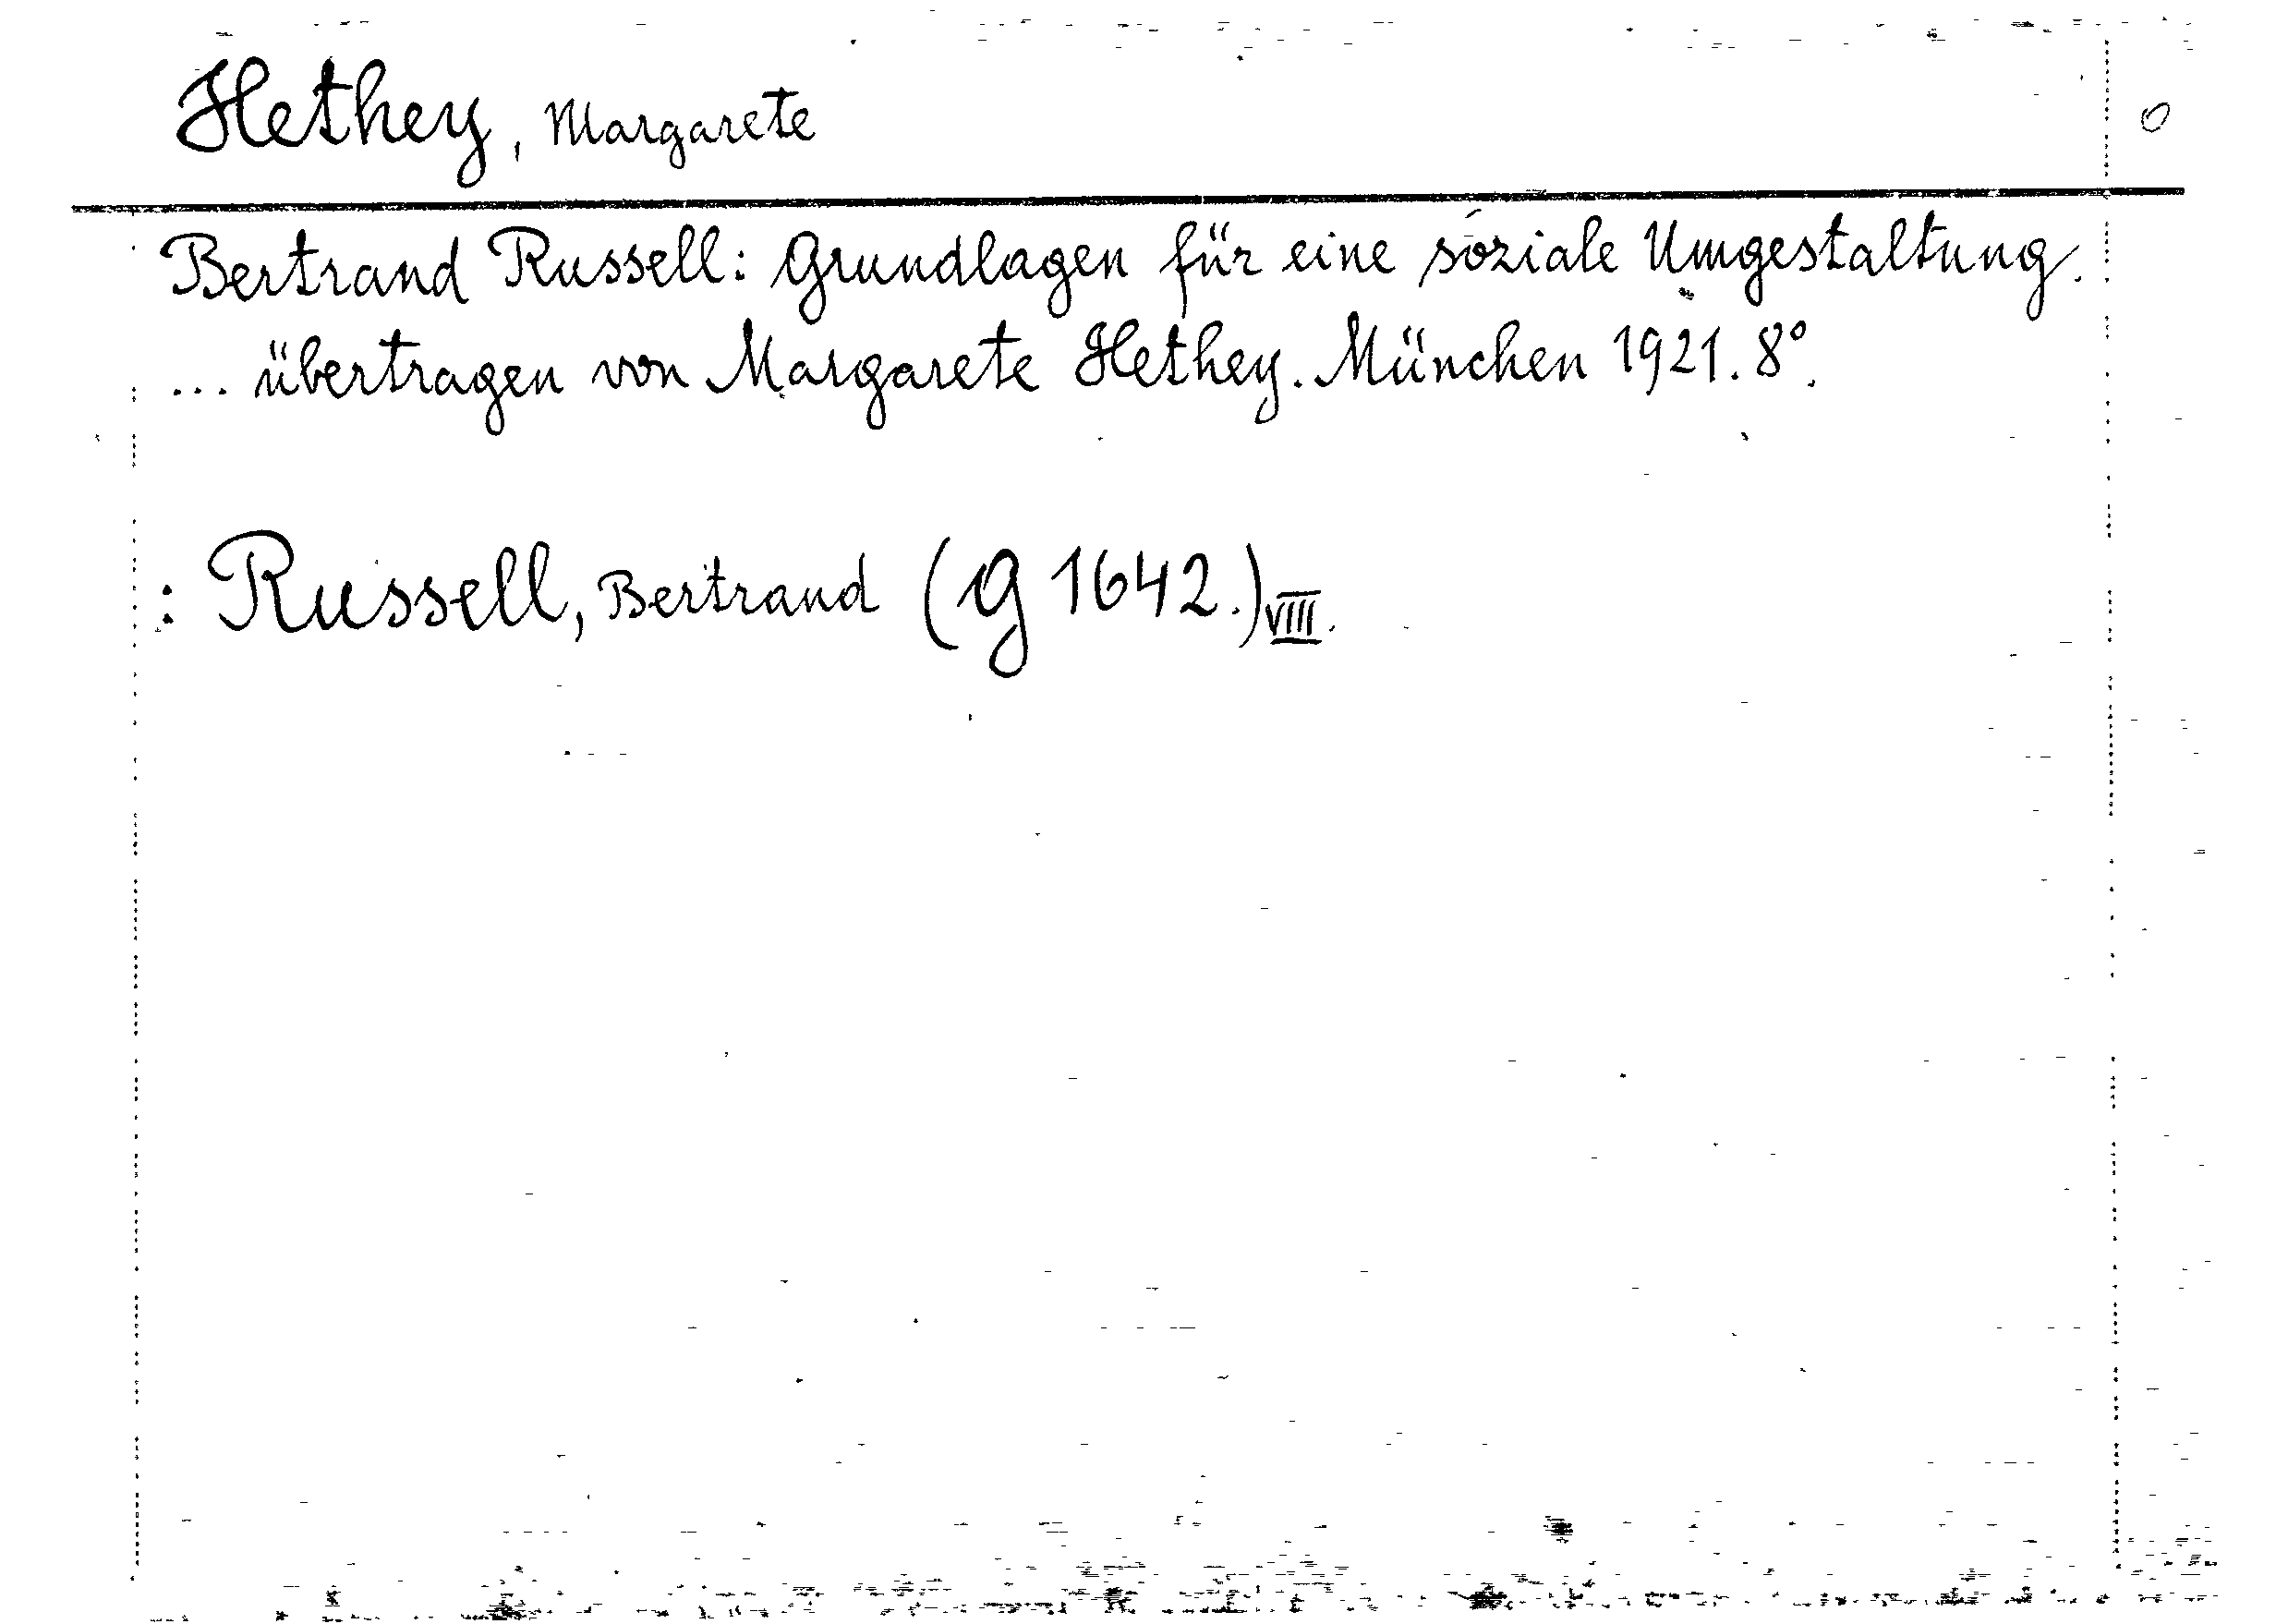 Hethey, Margarete
0
Bertrand Russell: Grundlagen für eine soziale Umgestaltung.
... übertragen von Margarete Hethey. München 1921. 8°.
: Russell, Bertrand (G 1642.) VIIII.